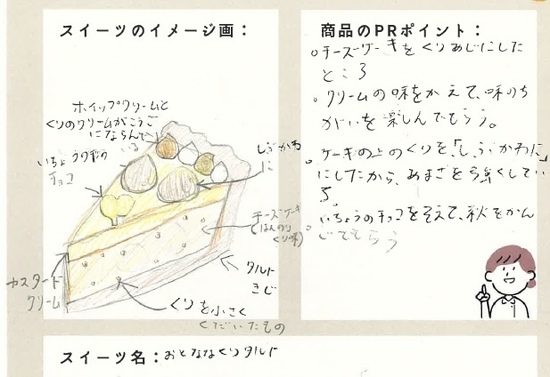 スイーツのイメージ画：
ホイップクリームと
くりのクリームがこうご
にならんで
いる
いちょうの形の
チョコ
しぶかわ
に
チーズケーキ
(ほんのり
くり味)
タルト
きじ
カスタード
クリーム
くりを小さく
くだいたもの
商品のPRポイント：
。チーズケーキをくりあじにした
ところ
。クリームの味をかえて、味のち
がいを楽しんでもらう。
。ケーキの上のくりを、「しぶかわに」
にしたから、あまさを
る。
。いちょうのチョコをそえて、秋をかん
じてもらう
スイーツ名：おとななくりタルト